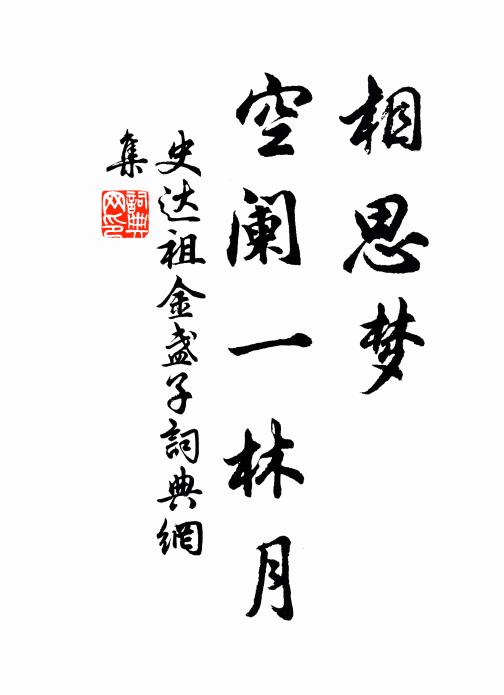 相思梦
空阑一林月
史达祖金盏子詞典網
集
詞典网印